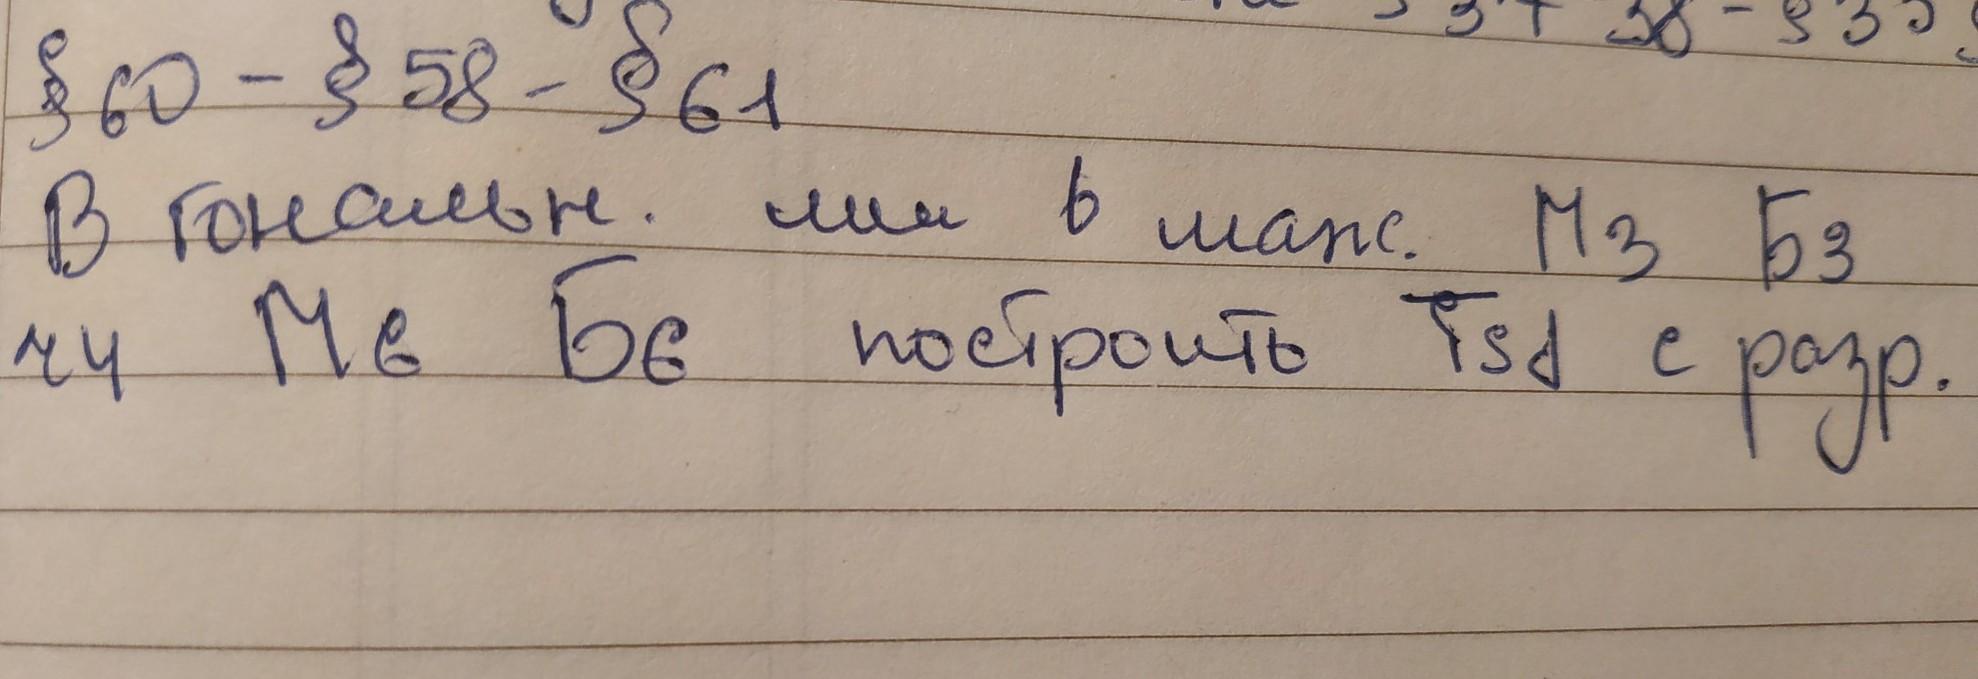 § 37 38 - § 35
§ 60 - § 58 - § 61
В тональн. ми ♭ мажс. М3 Б3
ч4 М6 Б6 построить Tsd с разр.